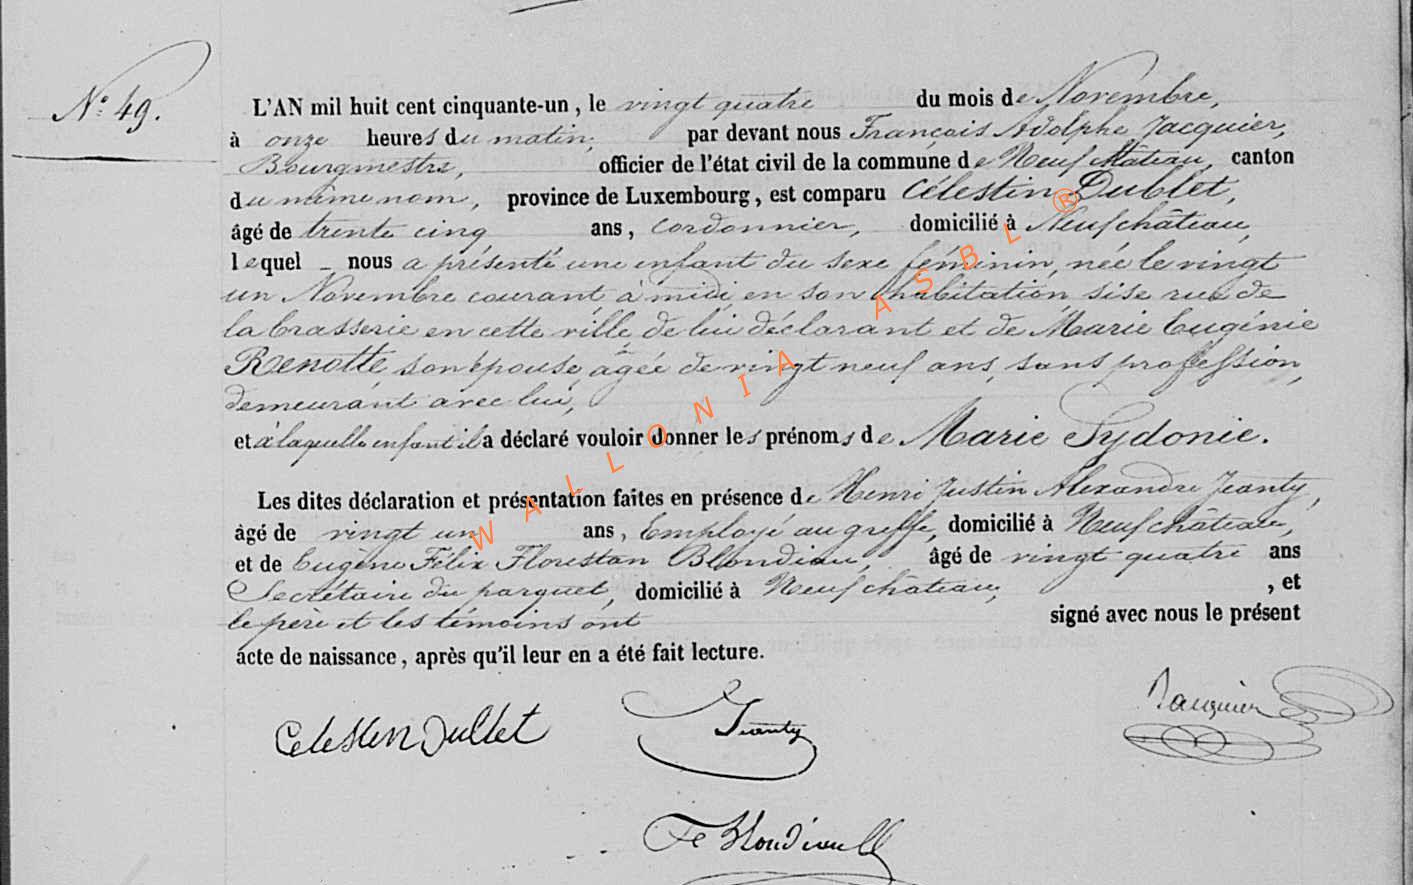 N° 49.
L'AN mil huit cent cinquante-un, le vingt quatre du mois de Novembre,
à onze heures du matin, par devant nous François Adolphe Jacquier,
Bourgmestre, officier de l'état civil de la commune de Neufchâteau, canton
du même nom, province de Luxembourg, est comparu Célestin Dublet,
âgé de trente cinq ans, cordonnier, domicilié à Neufchâteau,
lequel nous a présenté une enfant du sexe féminin, née le vingt
un Novembre courant à midi, en son habitation sise rue de
la brasserie en cette ville, de lui déclarant et de Marie Eugénie
Renotte son épouse, âgée de vingt neuf ans, sans profession,
demeurant avec lui,
et à laquelle enfant il a déclaré vouloir donner les prénoms de Marie Sydonie.
Les dites déclaration et présentation faites en présence de Henri Justin Alexandre Jeanty,
âgé de vingt un ans, Employé au greffe, domicilié à Neufchâteau,
et de Eugène Félix Florestan Blondiau, âgé de vingt quatre ans
Secrétaire du parquet, domicilié à Neufchâteau, , et
le père et les témoins ont signé avec nous le présent
acte de naissance, après qu'il leur en a été fait lecture.
Celesten Dublet Jeanty Jacquier
Fe Blondiau
WALLONIA ASBL ®